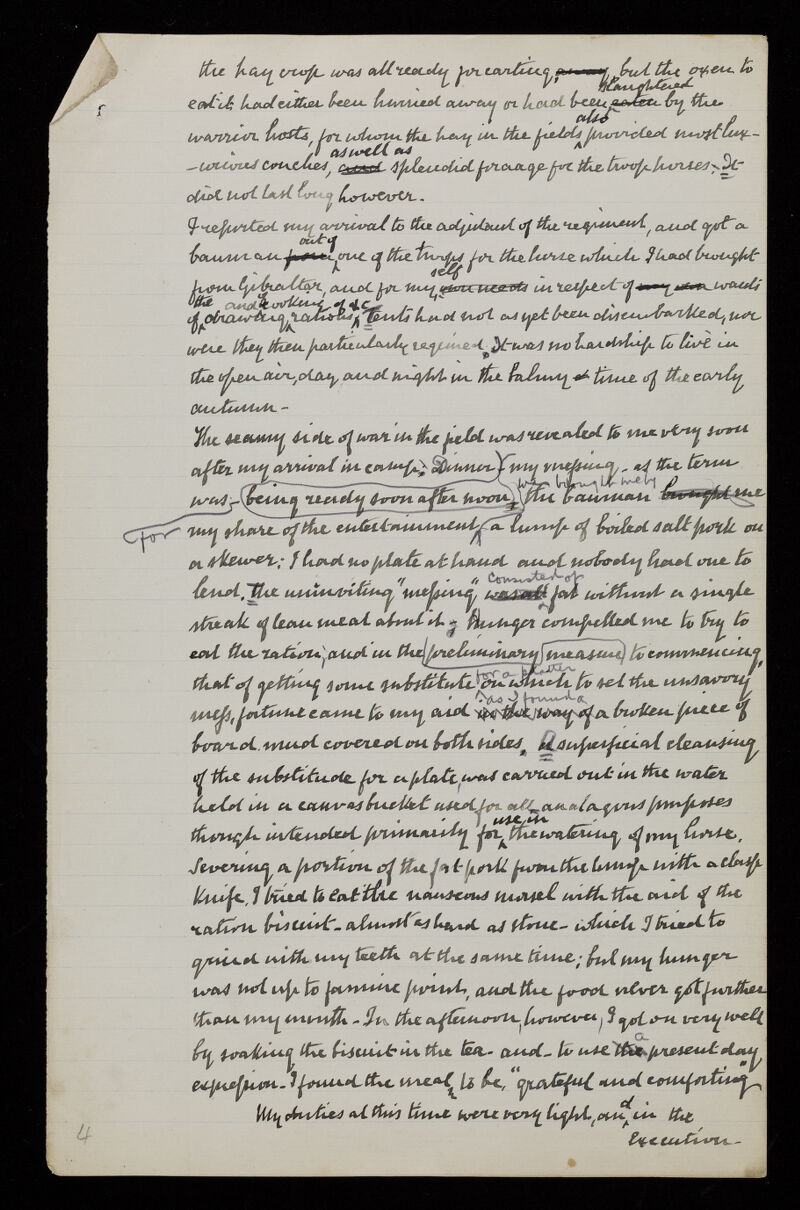 the hay crop was all ready for carting, away, but the oxen to
slaughtered
eat it had either been hurried away or had been eaten by the
also
warrior hosts, for whom the hay in the fields provided most lux-
as well as
-urious couches, and splendid foraage for the troop horses; It
did not last long however.
I reported my arrival to the adjutant of the regiment, and got a
out of
batman from one of the troops for the horse which I had brought
self
from Gibraltar, and for my own needs in respect of my own wants
the and cooking of &c
of drawing rations, tents had not as yet been disembarked, nor
were they then particularly required, It was no hardship to live in
the open air, day and night in the balmy time of the early
autumn -
The seamy side of war in the field was revealed to me very soon
after my arrival in camp; Dinner, my messing - as the term
was brought me by
was - being ready soon after noon, the batman brought me
for my share of the entertainment, a lump of boiled salt pork on
a skewer; I had no plate at hand and nobody had one to
consisted of
lend. The uninviting "messing" was all fat without a single
streak of lean meat about it; Hunger compelled me to try to
eat the ration; and in the preliminary measure to commencing,
for a platter
that of getting some substitute on which to set the unsavory
as I found a
mess, fortune came to my aid in the way of a broken piece of
board mud covered on both sides, A superficial cleansing
of the substitude for a plate, was carried out in the water
held in a canvas bucket used for all analagous purposes
use in
though intended primarily for the watering of my horse.
Severing a portion of the fat pork from the lump with a clasp
knife, I tried to eat the nauseous morsel with the aid of the
ration biscuit - almost as hard as stone - which I tried to
grind with my teeth at the same time; but my hunger
was not up to famine point, and the food never got further
than my mouth - In the afternoon, however, I got on very well
a
by soaking the biscuit in the tea - and - to use the present day
expression - I found the meal, to be, "grateful and comforting"
My duties at this time were very light, and in the
execution -
4